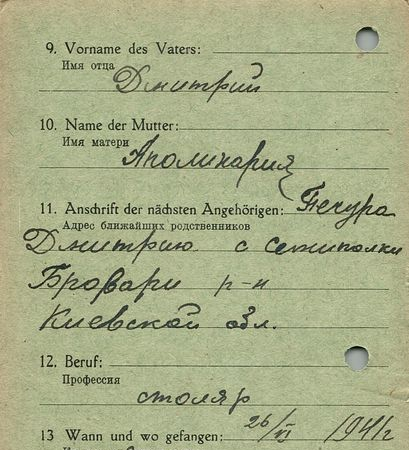 9. Vorname des Vaters:
Имя отца
Дмитрий
10. Name der Mutter:
Имя матери
Аполинария
11. Anschrift der nächsten Angehörigen: Печура
Адрес ближайших родственников
Дмитрию с Семиполки
Бровари р-н
Киевской обл.
12. Beruf:
Профессия
столяр
13 Wann und wo gefangen: 26/VI 1941г